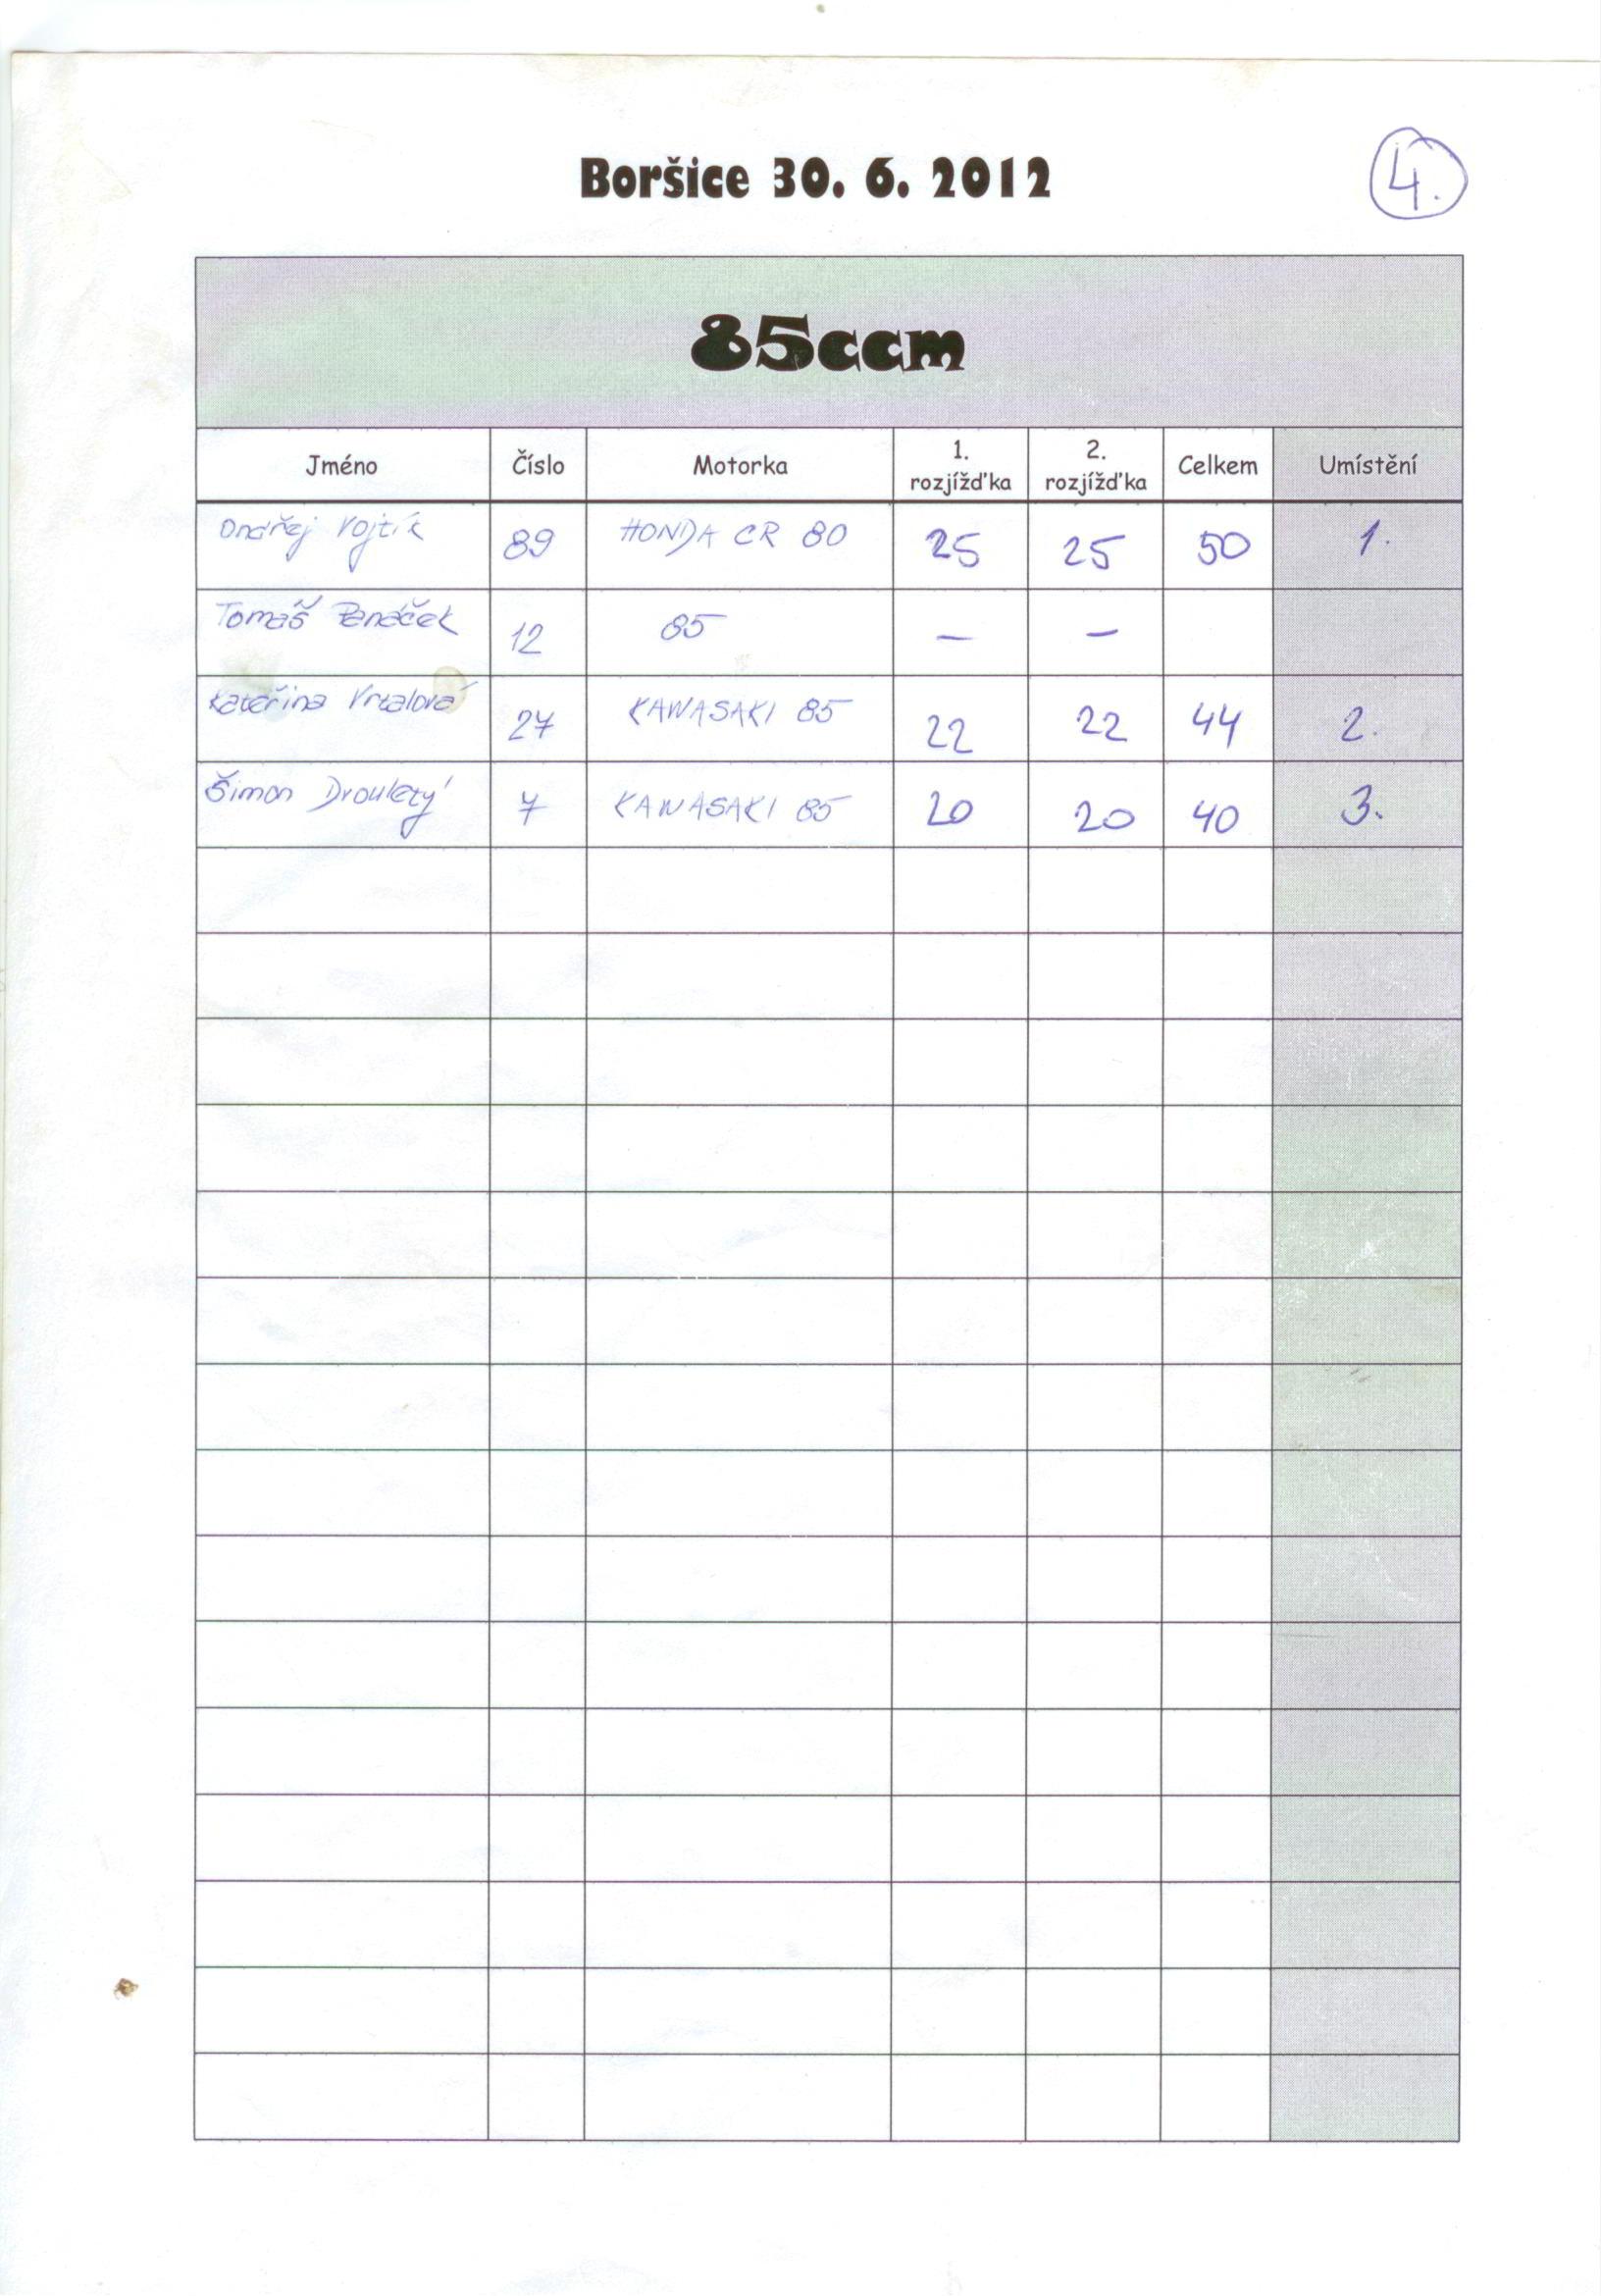 Boršice 30. 6. 2012
4.
85ccm
Jméno Číslo Motorka 1. rozjížďka 2. rozjížďka Celkem Umístění
Ondřej Vojtík 89 HONDA CR 80 25 25 50 1.
Tomáš 12 85 – –
Kateřina Vrtalová 27 KAWASAKI 85 22 22 44 2.
Šimon 7 KAWASAKI 85 20 20 40 3.